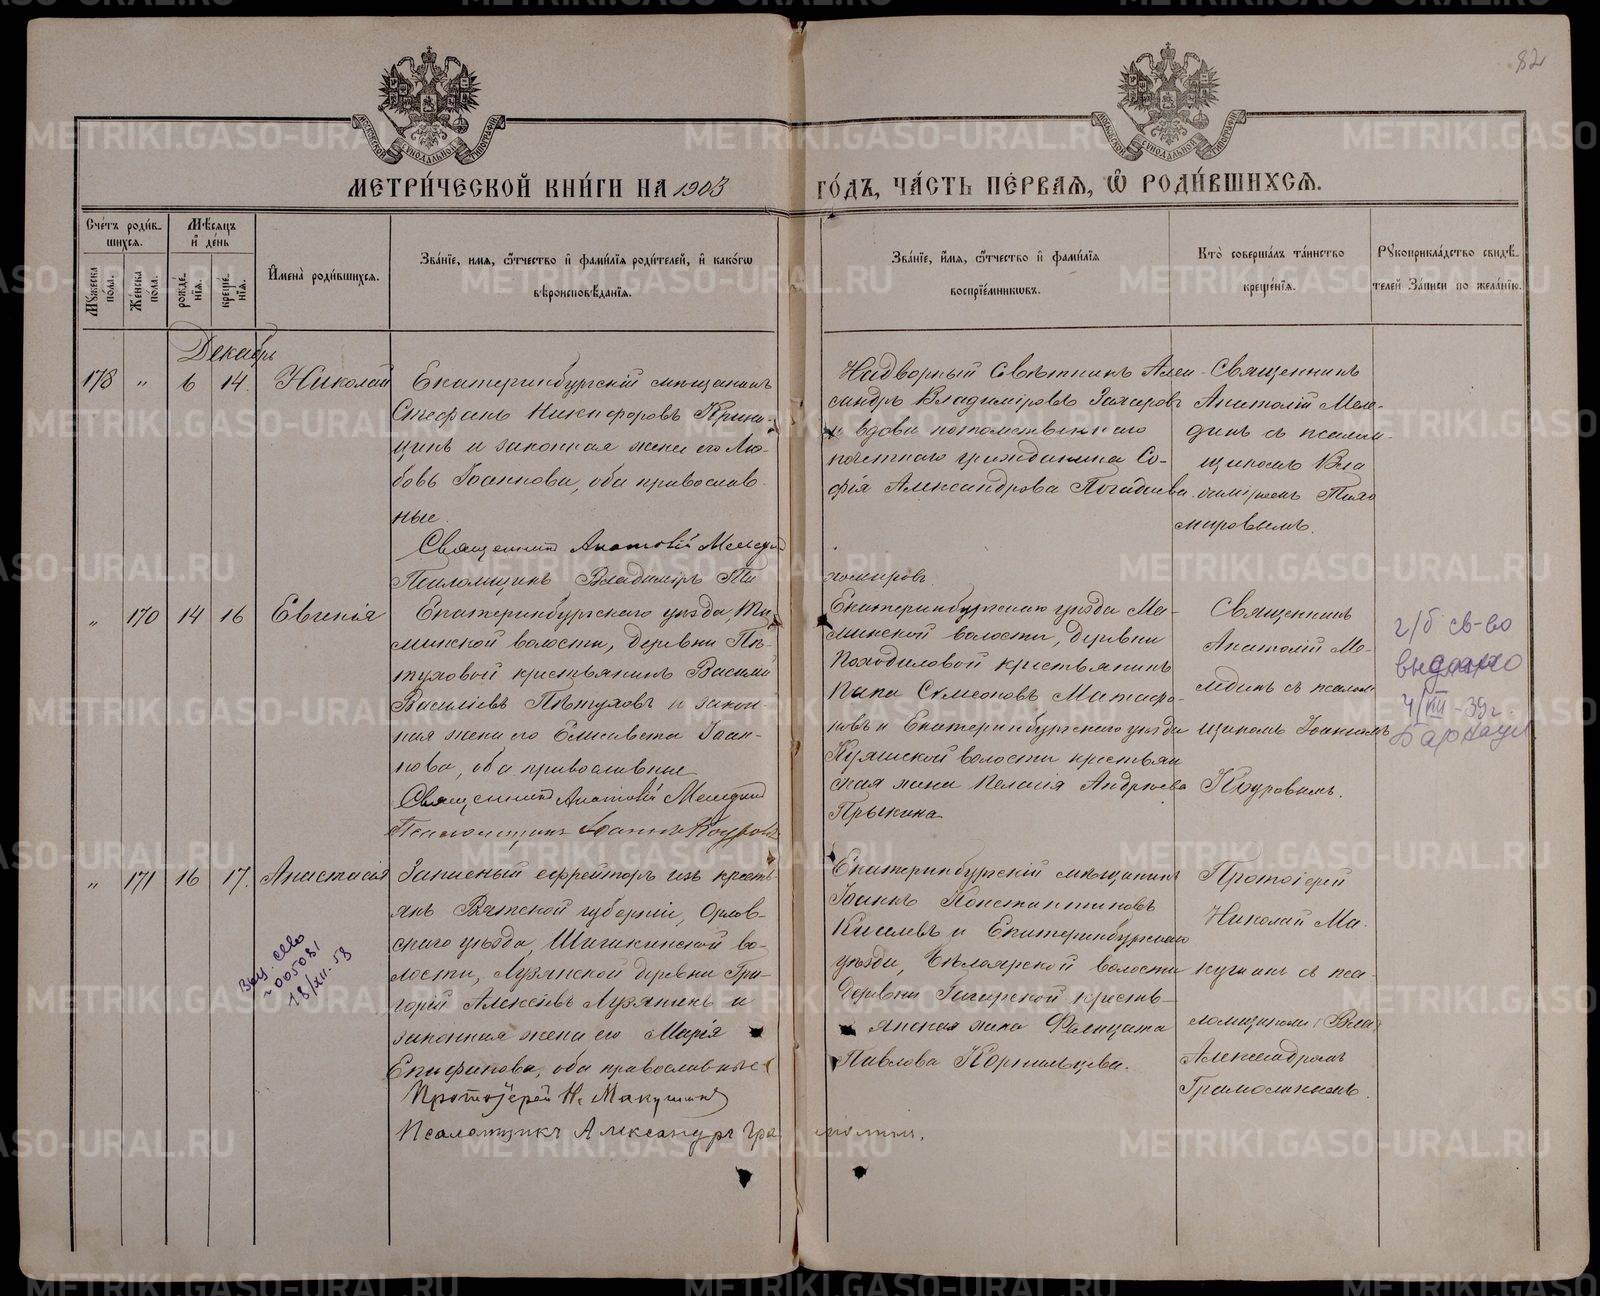 82
МОСКОВСКОЙ СѴНОДАЛЬНОЙ ТИПОГРАФІИ
МОСКОВСКОЙ СѴНОДАЛЬНОЙ ТИПОГРАФІИ
МЕТРИ́ЧЕСКОЙ КНИ́ГИ НА 1903 ГО́ДЪ, ЧА́СТЬ ПЕ́РВАЯ, Ѡ РОДИ́ВШИХСЯ.
Сче́тъ роди́в-
шихся.
Мѣ́сяцъ
и де́нь
Му́жеска
по́ла.
Же́нска
по́ла.
рожде́-
нія.
креще́-
нія.
Имена̀ роди́вшихся.
Зва́ніе, имя, ѻ́тчество и фами́лія роди́телей, и како́гѡ
вѣроисповѣ́данія.
Зва́ніе, и́мя, ѻ́тчество и фами́лія
воспріе́мникѡвъ.
Кто̀ соверша́лъ та́инство
креще́нія.
Рукоприкла́дство свидѣ́-
телей за́писи по жела́нію.
Декабрь
178 " 6 14. Николай
Екатеринбургскій мѣщанинъ
Стефанъ Никифоровъ
и законная жена его Лю-
бовь Іоаннова, оба православ-
ные.
Священникъ Анатолій Меледин
Псаломщикъ Владиміръ Ти
хомировъ.
Надворный Совѣтникъ Алек-
сандръ Владиміровъ Захаровъ
и вдова потомственнаго
почетнаго гражданина Со-
фія Александрова Погадаева.
Священникъ
Анатолій Меле-
динъ съ псалом-
щикомъ Вла
диміромъ Тихо
мировымъ.
" 170 14 16 Евгенія
Екатеринбургскаго уѣзда, Ма-
минской волости, деревни Пѣ-
туховой крестьянинъ Василій
Василіевъ Пѣтуховъ и закон-
ная жена его Елисавета Іоан-
нова, оба православные
Священникъ Анатолій Меледин
Псаломщикъ Іоаннъ Кауров
Екатеринбургскаго уѣзда Ма-
минской волости, деревни
Походиловой крестьянинъ
Сѵмеоновъ Матафо-
новъ и Екатеринбургскаго уѣзда
волости крестьян
ская жена Пелагія Андреева
Прыкина
Священникъ
Анатолій Ме-
лединъ съ псалом
щикомъ Іоанномъ
Кауровымъ.
г/б св-во
выдано
4/VIII-39г.
Барнаул
" 171 16 17. Анастасія
Запасный ефрейторъ изъ кресть
янъ Вятской губерніи, Орлов-
скаго уѣзда, во-
лости, Лузянской деревни Гри-
горій Алексіевъ Лузянинъ и
законная жена его Марія
Епифанова, оба православные
Протоіерей Н. Макушин
Псаломщикъ Александръ Гра молин.
Екатеринбургскій мѣщанинъ
Іоаннъ Константиновъ
Киселевъ и Екатеринбургскаго
уѣзда, Бѣлоярской волости
деревни Гагарской кресть-
янская жена Фелицата
Павлова Корнильцева.
Протоіерей
Николай Ма-
кушинъ съ пса-
ломщикомъ
Александромъ
Грамолинымъ.
005081
18/XII-58